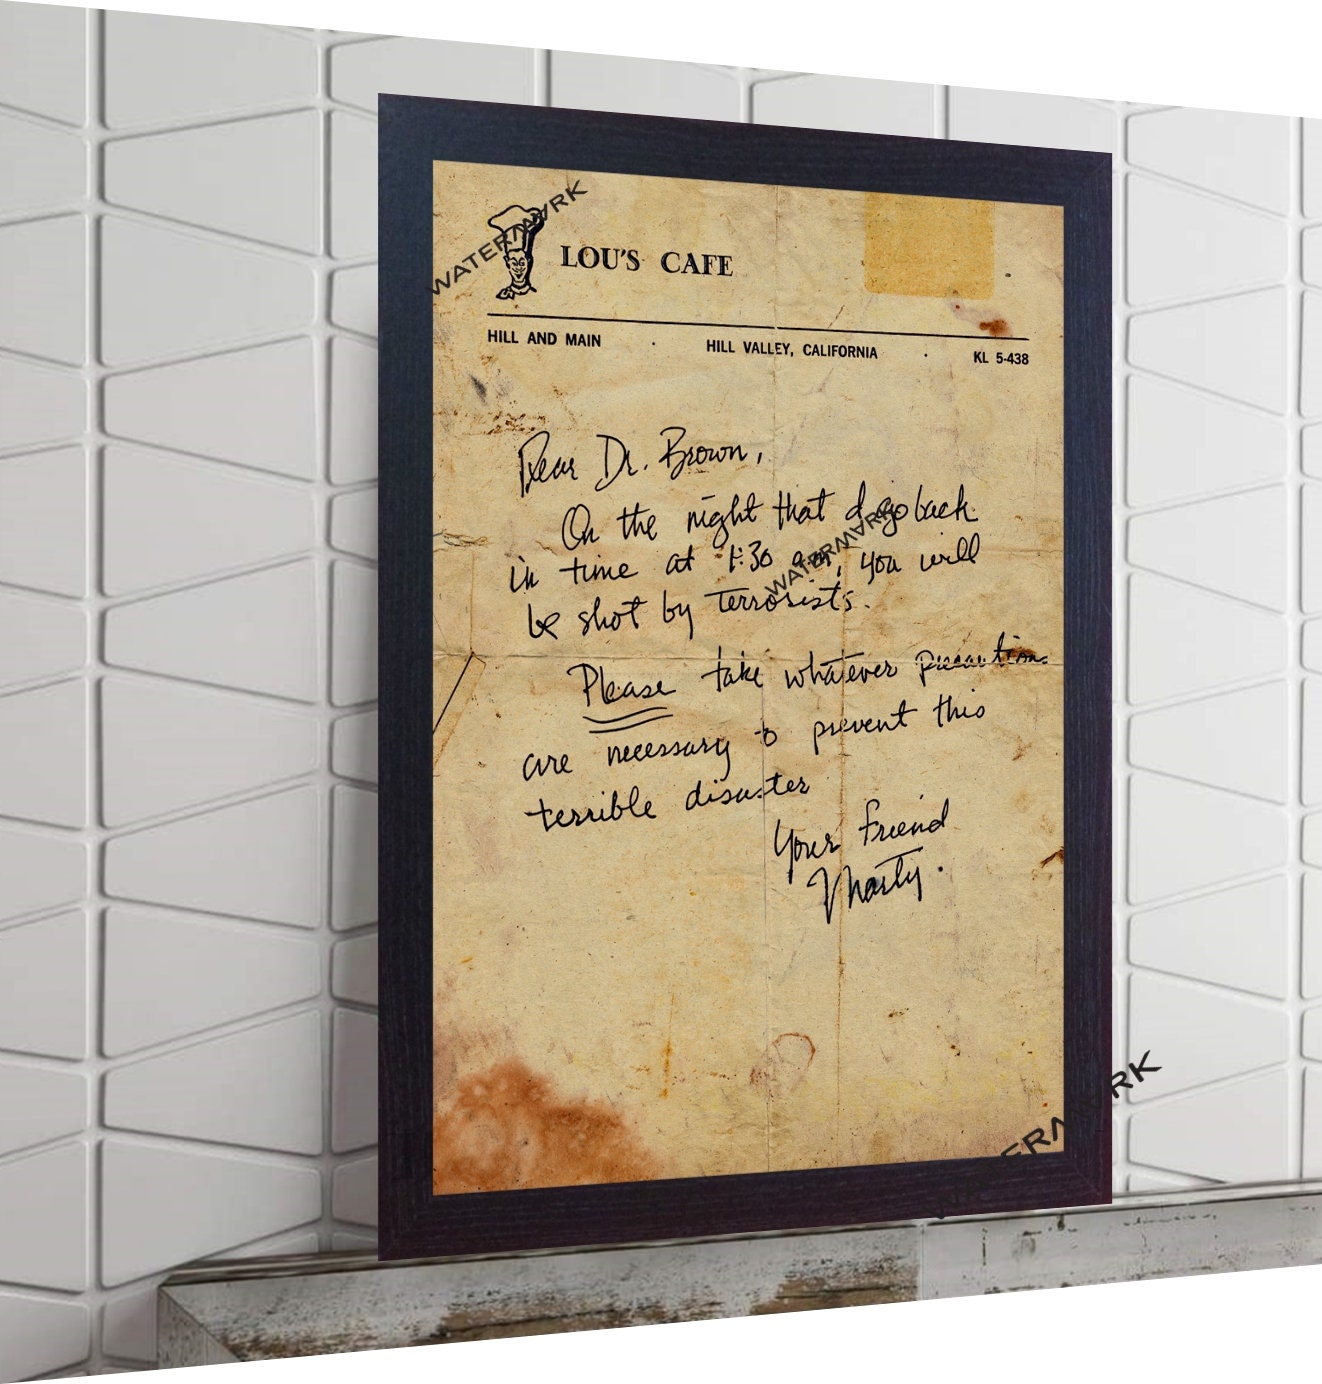 WATERMARK
LOU'S CAFE
HILL AND MAIN · HILL VALLEY, CALIFORNIA · KL 5-438
Dear Dr. Brown,
On the night that I go back
in time at 1:30 am, you will
be shot by terrorists.
WATERMARK
Please take whatever precautions
are necessary to prevent this
terrible disaster
Your friend
Marty.
WATERMARK